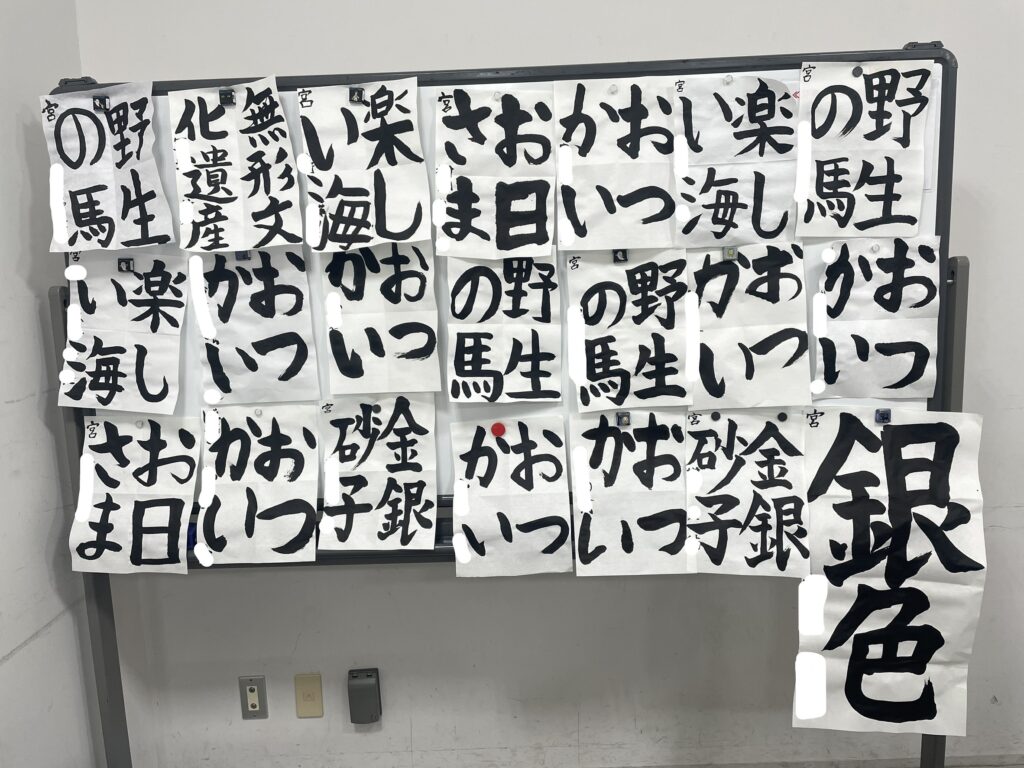 野生
の馬
宮
無形文
化遺産
楽し
い海
宮
お日
さま
宮
おつ
かい
楽し
い海
宮
野生
の馬
宮
楽し
い海
宮
おつ
かい
おつ
かい
野生
の馬
野生
の馬
宮
おつ
かい
おつ
かい
お日
さま
宮
おつ
かい
金銀
砂子
宮
おつ
かい
おつ
かい
金銀
砂子
宮
銀色
宮